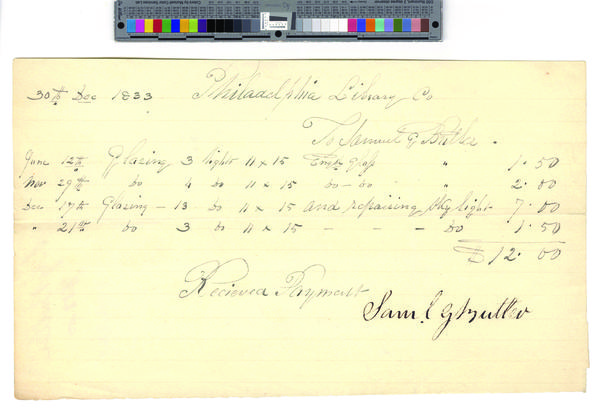 30th Dec 1833 Philadelphia Library Co
To Samuel G Butler
June 12th Glazing 3 lights 11 x 15 Engl glass " 1. 50
Nov 29th do 4 do 11 x 15 do - do " 2. 00
Dec 17th Glazing - 13 - do 11 x 15 and repairing sky light 7. 00
" 21st do 3 do 11 x 15 - - - do 1. 50
$12. 00
Recieved Payment
Saml G Butler